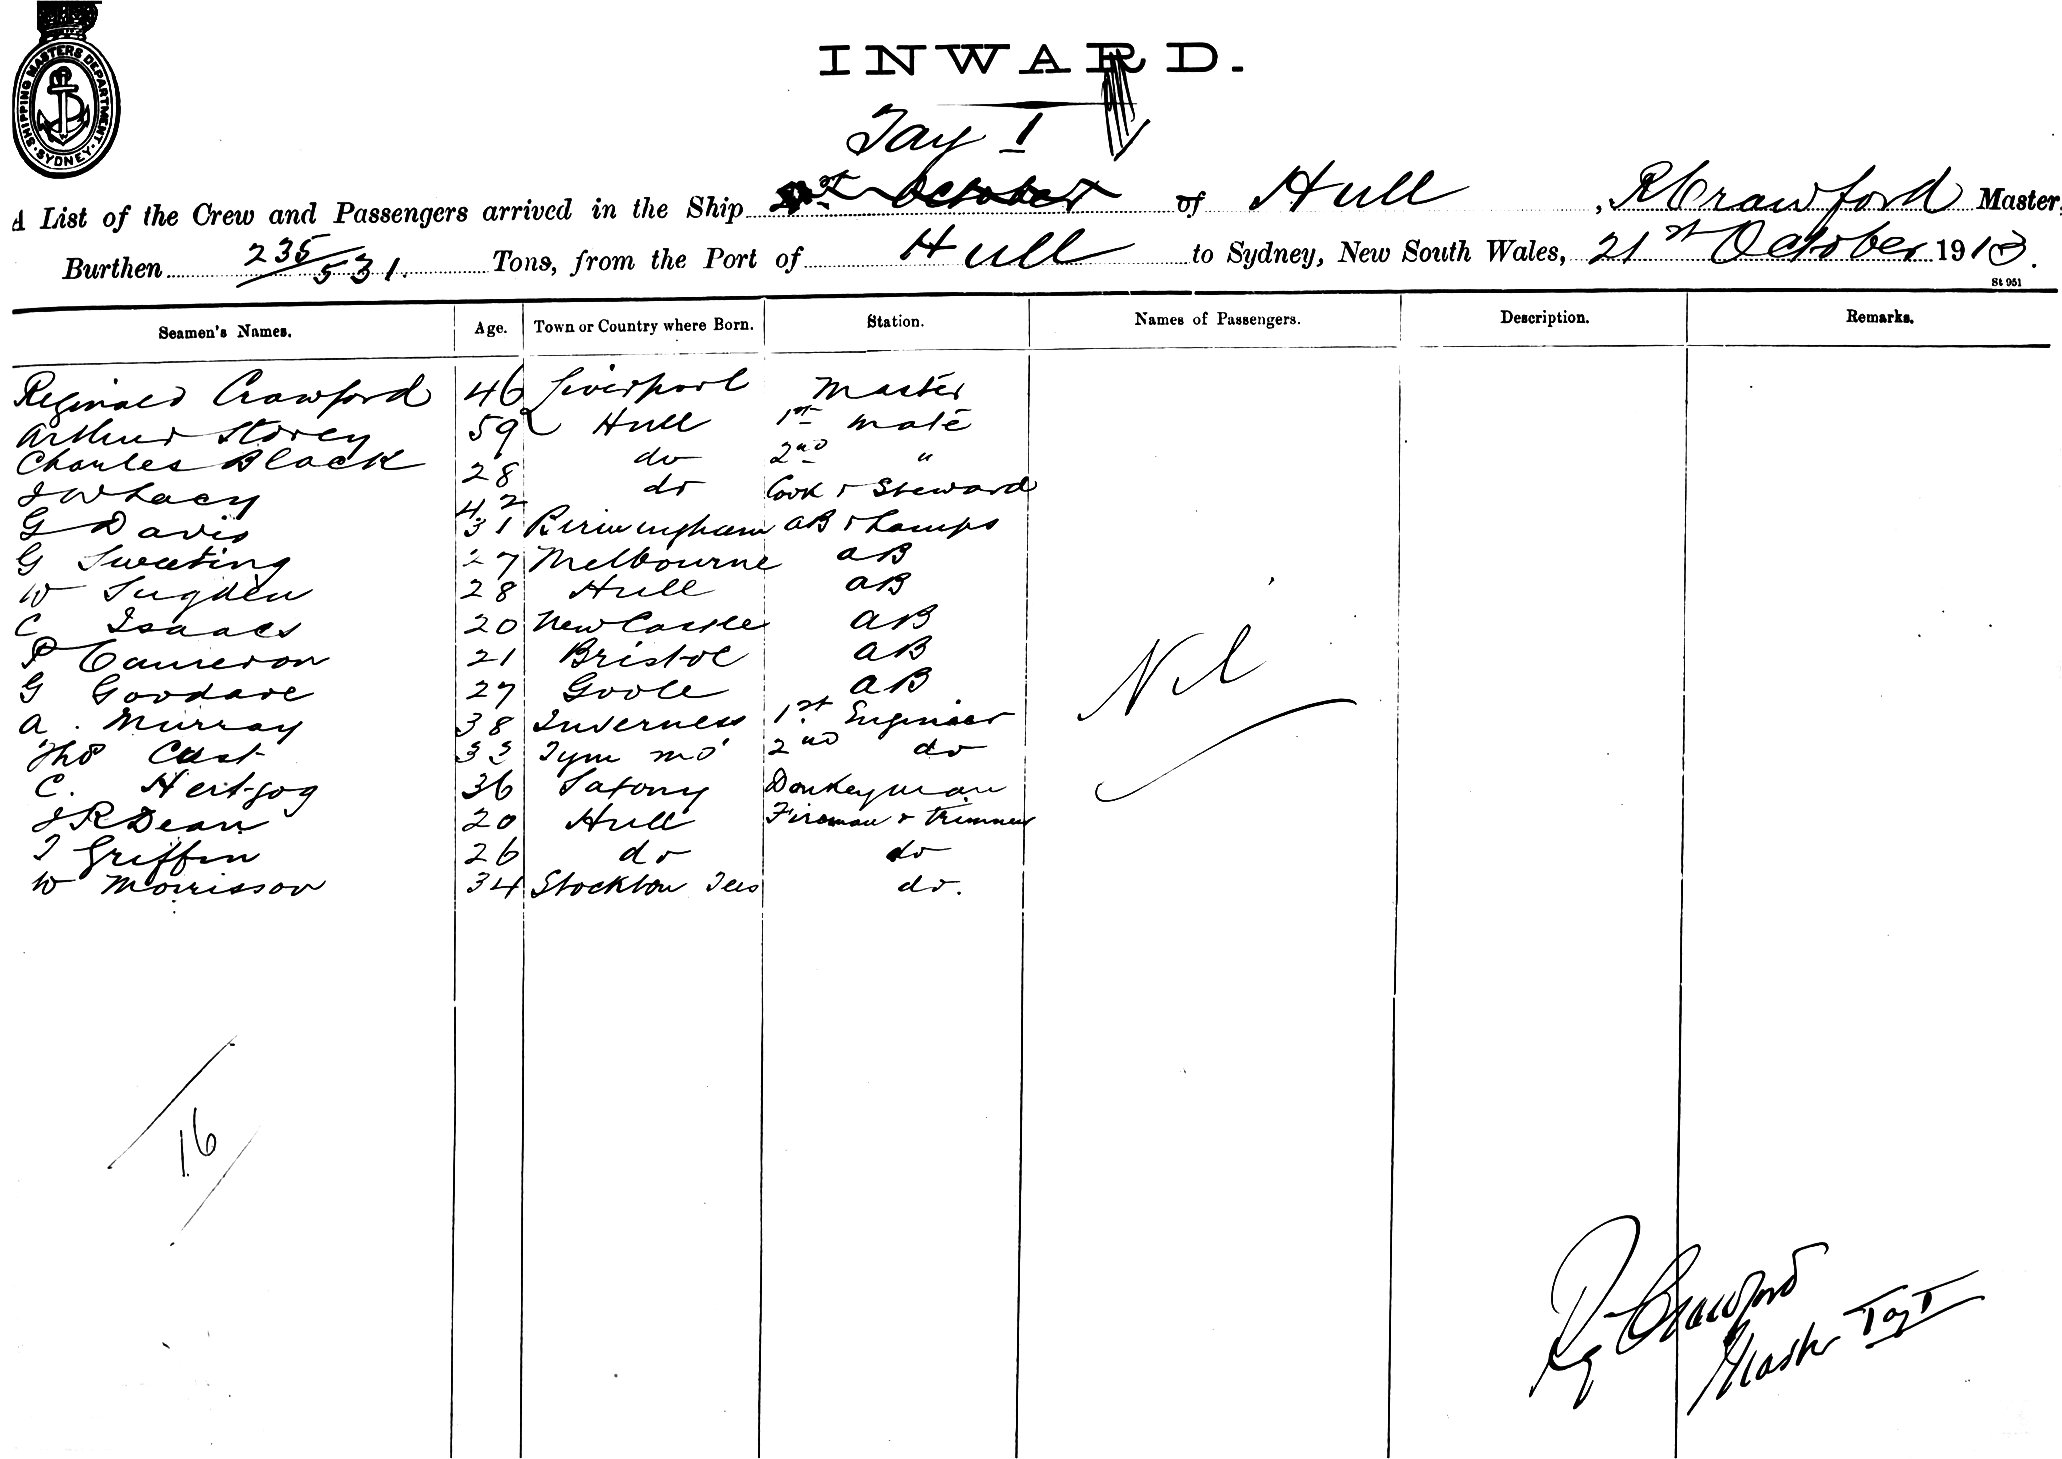 SHIPPING MASTERS DEPARTMENT. SYDNEY.
INWARD.
Tay I
A List of the Crew and Passengers arrived in the Ship 21st October of Hull, R Crawford Master,
Burthen 235/531. Tons, from the Port of Hull to Sydney, New South Wales, 21st October 1913.
St 951
Seamen's Names. Age. Town or Country where Born. Station. Names of Passengers. Description. Remarks.
Reginald Crawford 46 Liverpool Master
Arthur Storey 59 Hull 1st Mate
Charles Black 28 do 2nd "
J W Lacy 42 do Cook & Steward
G Davis 31 Birmingham AB & Lamps
G Sweeting 27 Melbourne AB
W Sugden 28 Hull AB
C Isaacs 20 New Castle AB
P Cameron 21 Bristol AB
G Goodare 27 Goole AB
Nil
A. Murray 38 Inverness 1st Engineer
Thos Cust 33 Tyn mo' 2nd do
C. Heitzog 36 Saxony Donkeyman
J R Dean 20 Hull Fireman & Trimmer
J Griffin 26 do do
W Morrisson 34 Stockton Tees do.
16
Reg Crawford
Master Tay I